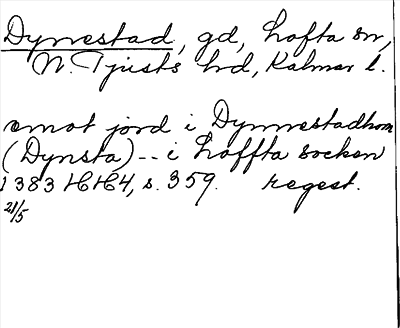 Dynestad, gd, Lofta sn,
N. Tjusts hd, Kalmar l.
emot jord i Dynnestadhom
(Dynsta) -- i Loffta socken
1383 HH4, s. 359. regest.
21/5